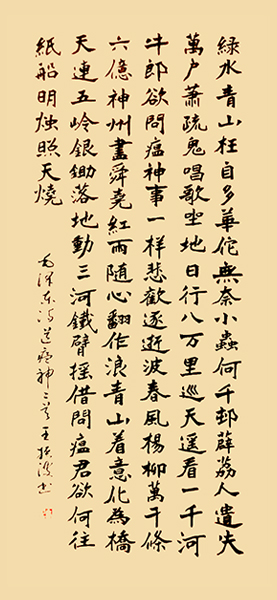 綠水青山枉自多華佗無奈小蟲何千邨薜荔人遺失
萬户蕭疏鬼唱歌坐地日行八万里巡天遥看一千河
牛郎欲問瘟神事一样悲歡逐逝波春風楊柳萬千條
六億神州盡舜堯紅雨隨心翻作浪青山着意化為橋
天連五嶺銀鋤落地動三河鐵臂摇借問瘟君欲何往
紙船明烛照天燒
毛泽东詩送瘟神二首王书